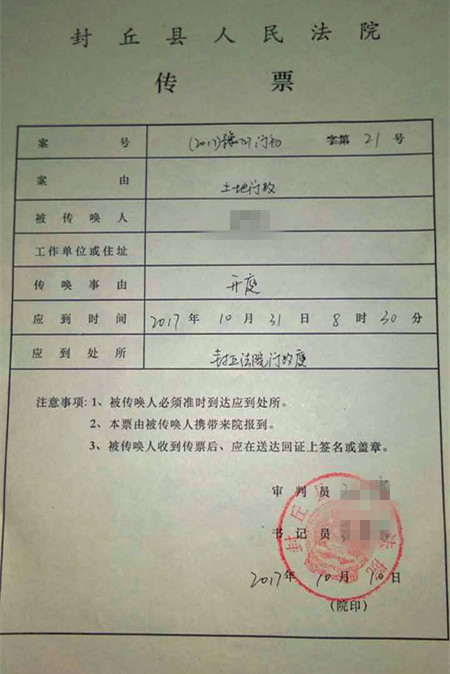 封丘县人民法院
传票
案号 (2017)豫 行初 字第 21 号
案由 土地行政
被传唤人
工作单位或住址
传唤事由 开庭
应到时间 2017 年 10 月 31 日 8 时 30 分
应到处所 封丘法院行政庭
注意事项:1、被传唤人必须准时到达应到处所。
2、本票由被传唤人携带来院报到。
3、被传唤人收到传票后、应在送达回证上签名或盖章。
审判员
书记员
2017年 10 月 10 日
(院印)
封丘 法院